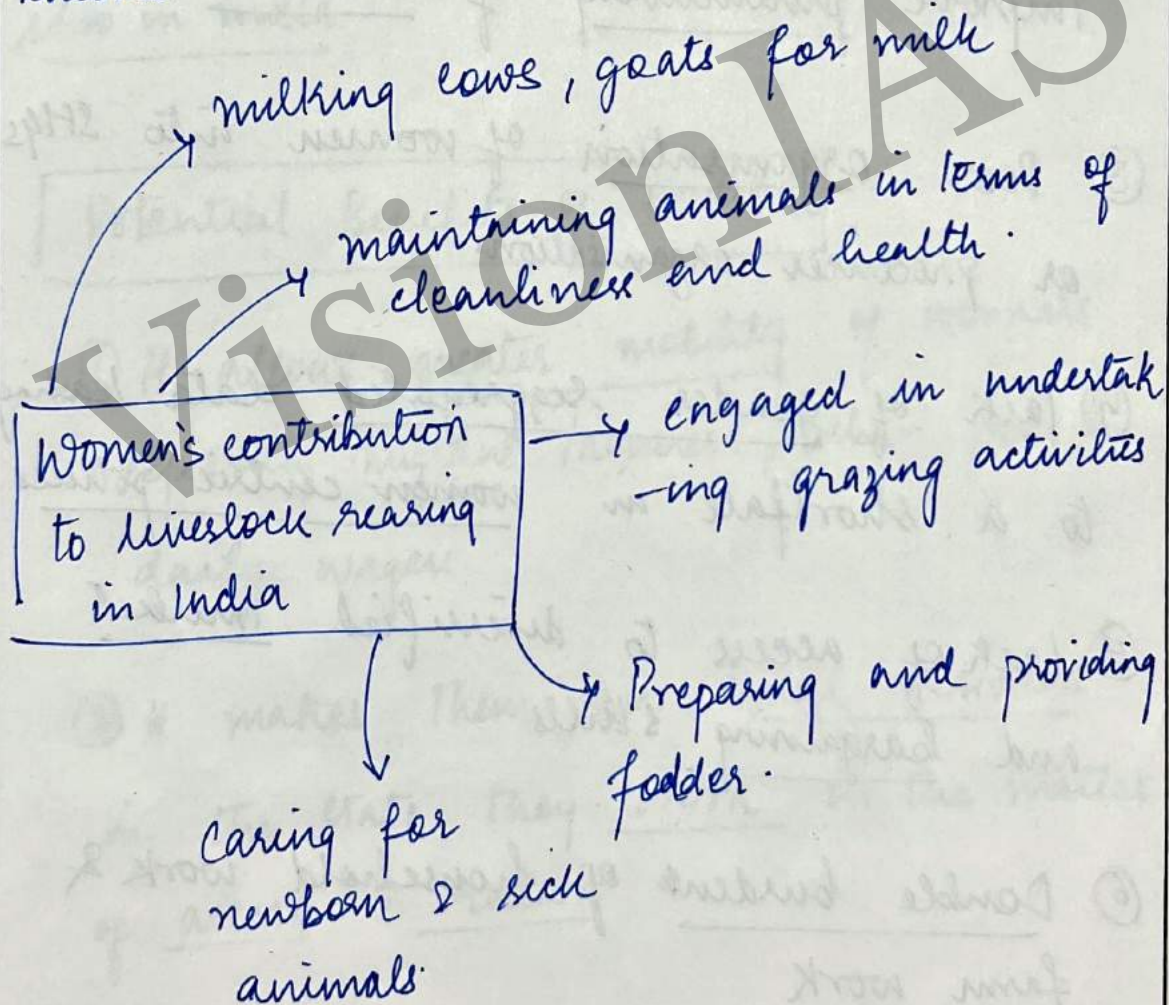 milking cows, goats for milk
maintaining animals in terms of
cleanliness and health.
Women's contribution
to livestock rearing
in India
engaged in undertak
-ing grazing activities
Preparing and providing
fodder.
Caring for
newborn & sick
animals.
VisionIAS